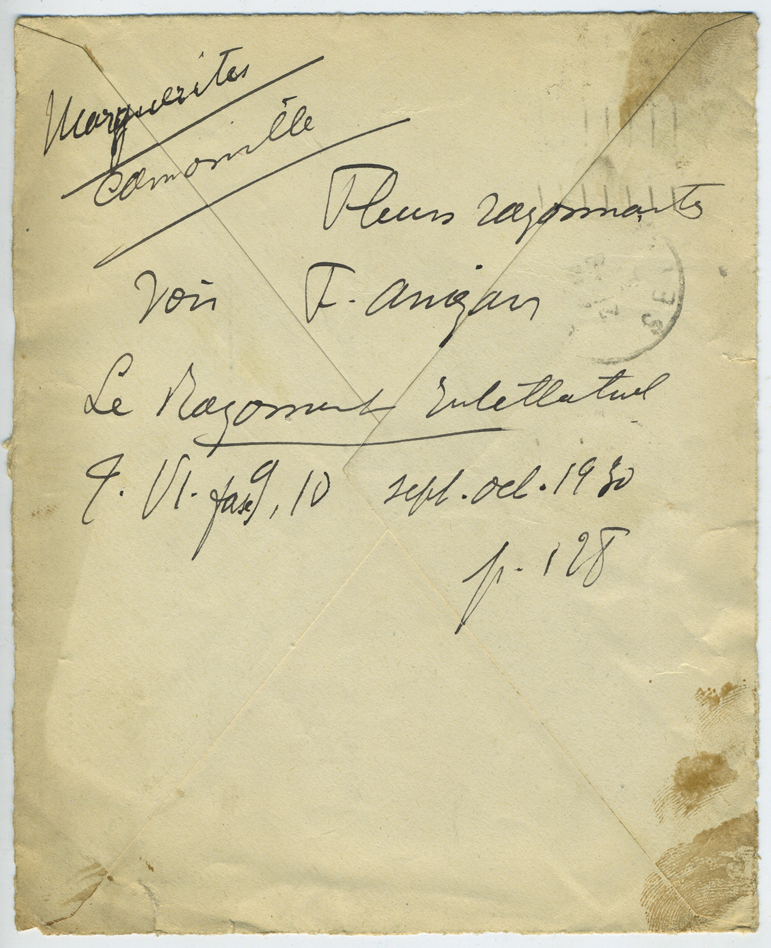 Marguerites
Camomille
Fleurs rayonnantes
Voir F. Amigan
Le Rayonnement Intellectuel
T. VI. fasc 9, 10 sept. oct. 1930
p. 128